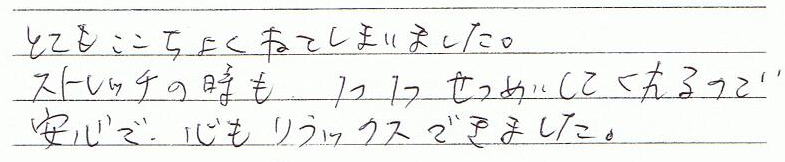 とてもここちよくねてしまいました。
ストレッチの時も 1つ1つ せつめいしてくれるので
安心で、心もリラックスできました。